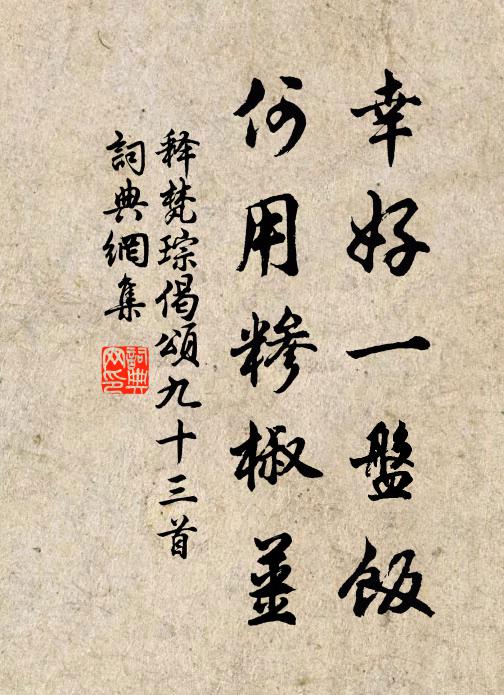 幸好一盤飯
何用糝椒薑
释梵琮偈頌九十三首
詞典網集
詞典
网印